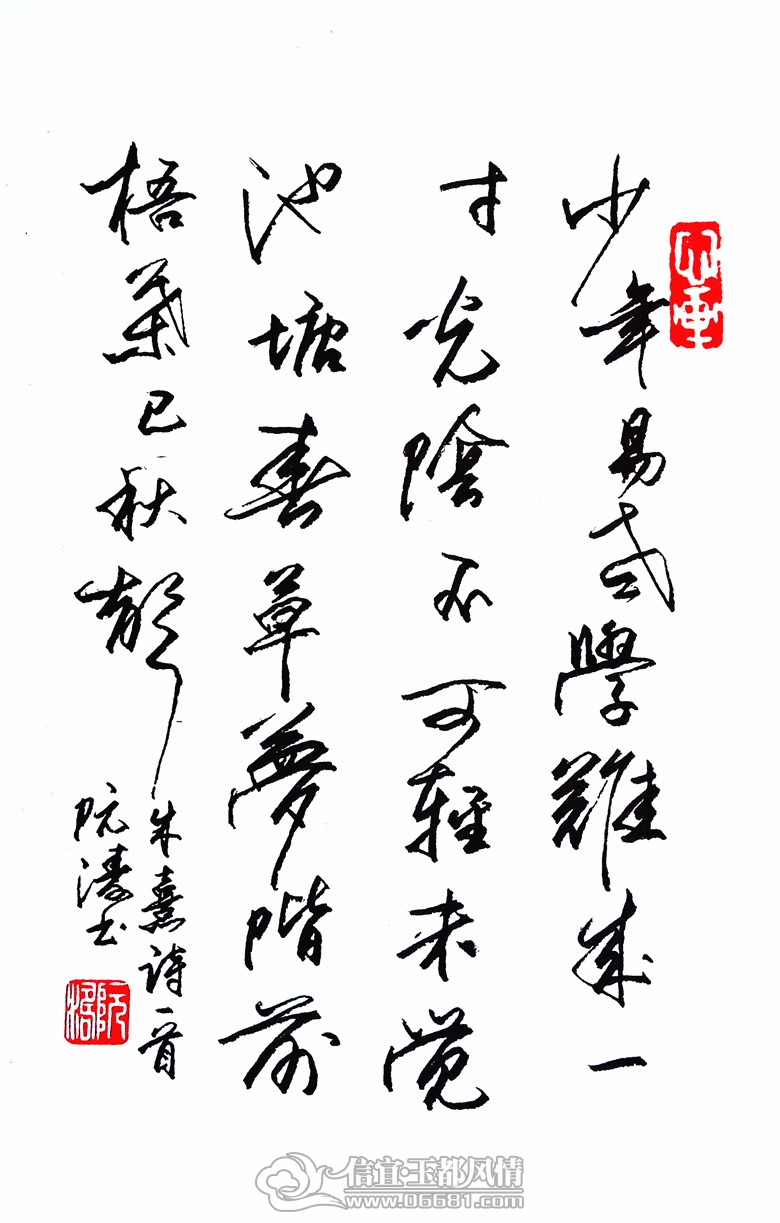 少年易老學難成一
寸光陰不可輕未覺
池塘春草夢階前
梧葉已秋聲
朱熹詩一首
阮濤书
信宜·玉都风情
www.06681.com